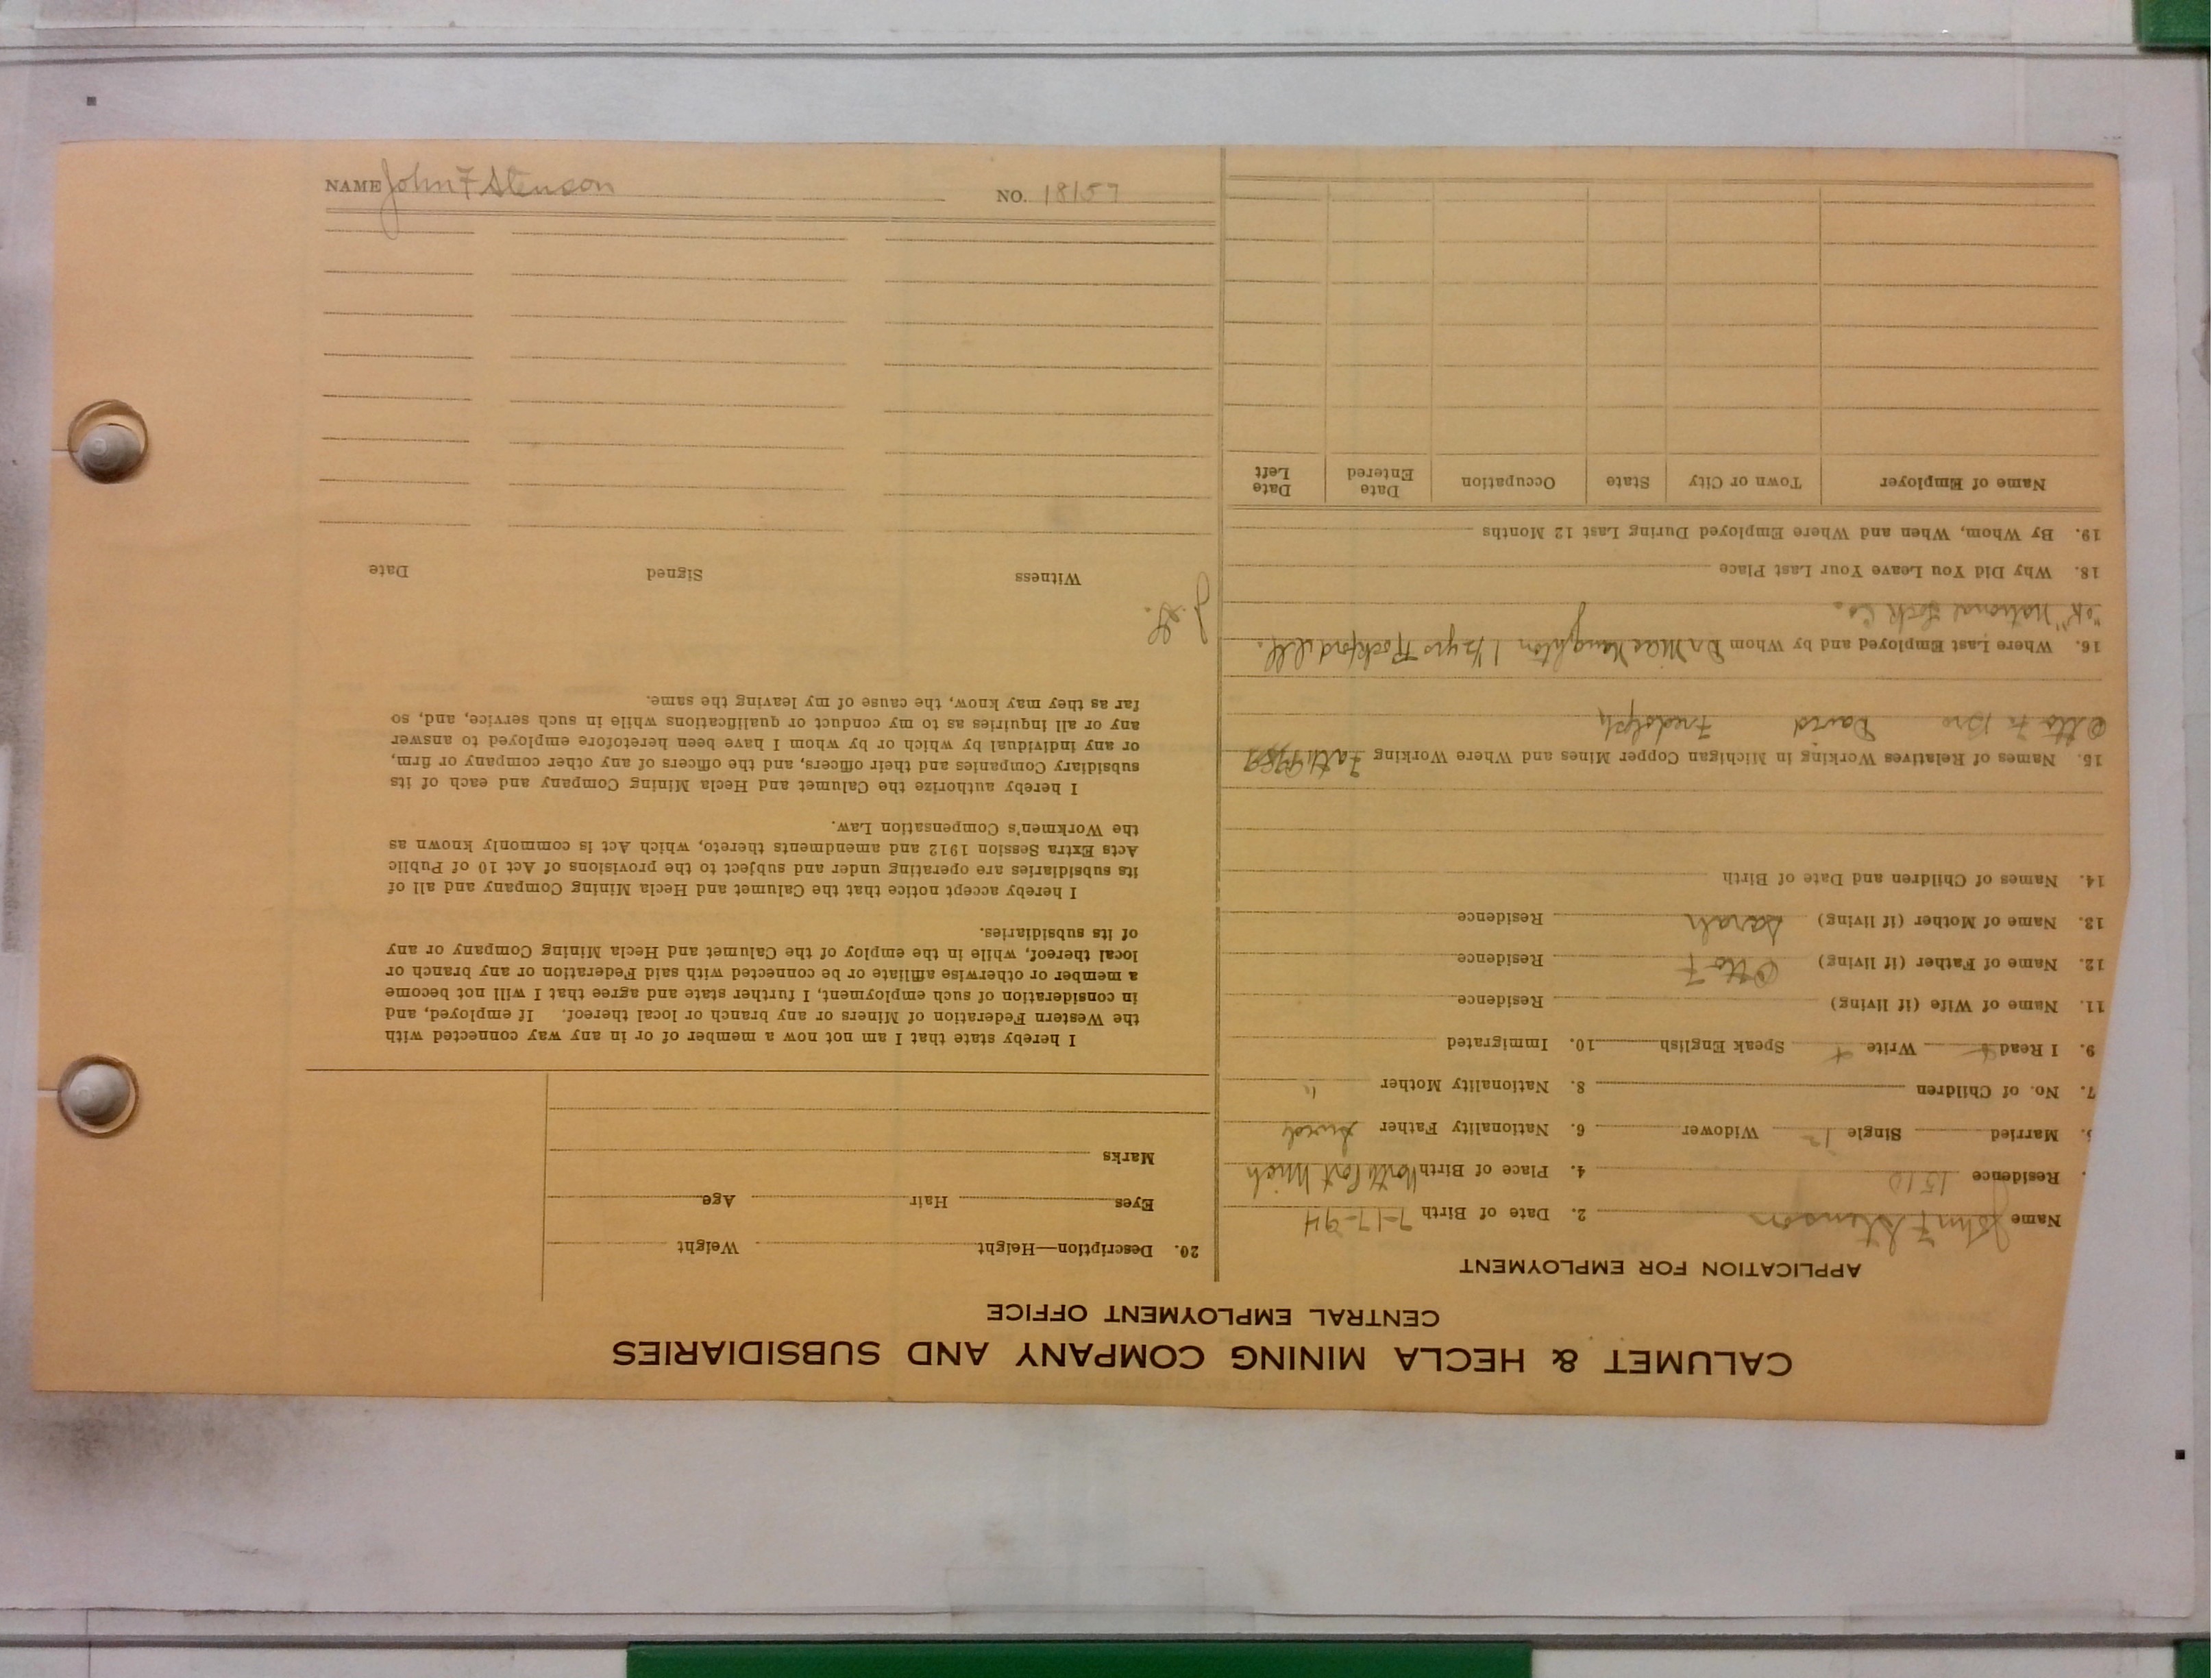 CALUMET & HECLA MINING COMPANY AND SUBSIDIARIES
CENTRAL EMPLOYMENT OFFICE
APPLICATION FOR EMPLOYMENT
Name John F Stenson 2. Date of Birth 7-17-94
Residence 1510 4. Place of Birth North Port Mich
Married Single Widower 6. Nationality Father Swede
7. No. of Children 8. Nationality Mother "
9. I Read Write Speak English 10. Immigrated
11. Name of Wife (if living) Residence
12. Name of Father (if living) Otto F Residence
13. Name of Mother (if living) Sarah Residence
14. Names of Children and Date of Birth
15. Names of Relatives Working in Michigan Copper Mines and Where Working
Otto Bro David Fredolph
16. Where Last Employed and by Whom Dr MacNaughton 1 1/2 yrs Rockford Ill.
National Lock Co.
18. Why Did You Leave Your Last Place
19. By Whom, When and Where Employed During Last 12 Months
Name of Employer Town or City State Occupation Date Entered Date Left
20. Description—Height Weight
Eyes Hair Age
Marks
I hereby state that I am not now a member of or in any way connected with
the Western Federation of Miners or any branch or local thereof. If employed, and
in consideration of such employment, I further state and agree that I will not become
a member or otherwise affiliate or be connected with said Federation or any branch or
local thereof, while in the employ of the Calumet and Hecla Mining Company or any
of its subsidiaries.
I hereby accept notice that the Calumet and Hecla Mining Company and all of
its subsidiaries are operating under and subject to the provisions of Act 10 of Public
Acts Extra Session 1912 and amendments thereto, which Act is commonly known as
the Workmen's Compensation Law.
I hereby authorize the Calumet and Hecla Mining Company and each of its
subsidiary Companies and their officers, and the officers of any other company or firm,
or any individual by which or by whom I have been heretofore employed to answer
any or all inquiries as to my conduct or qualifications while in such service, and, so
far as they may know, the cause of my leaving the same.
Witness Signed Date
NAME John F Stenson NO. 18157